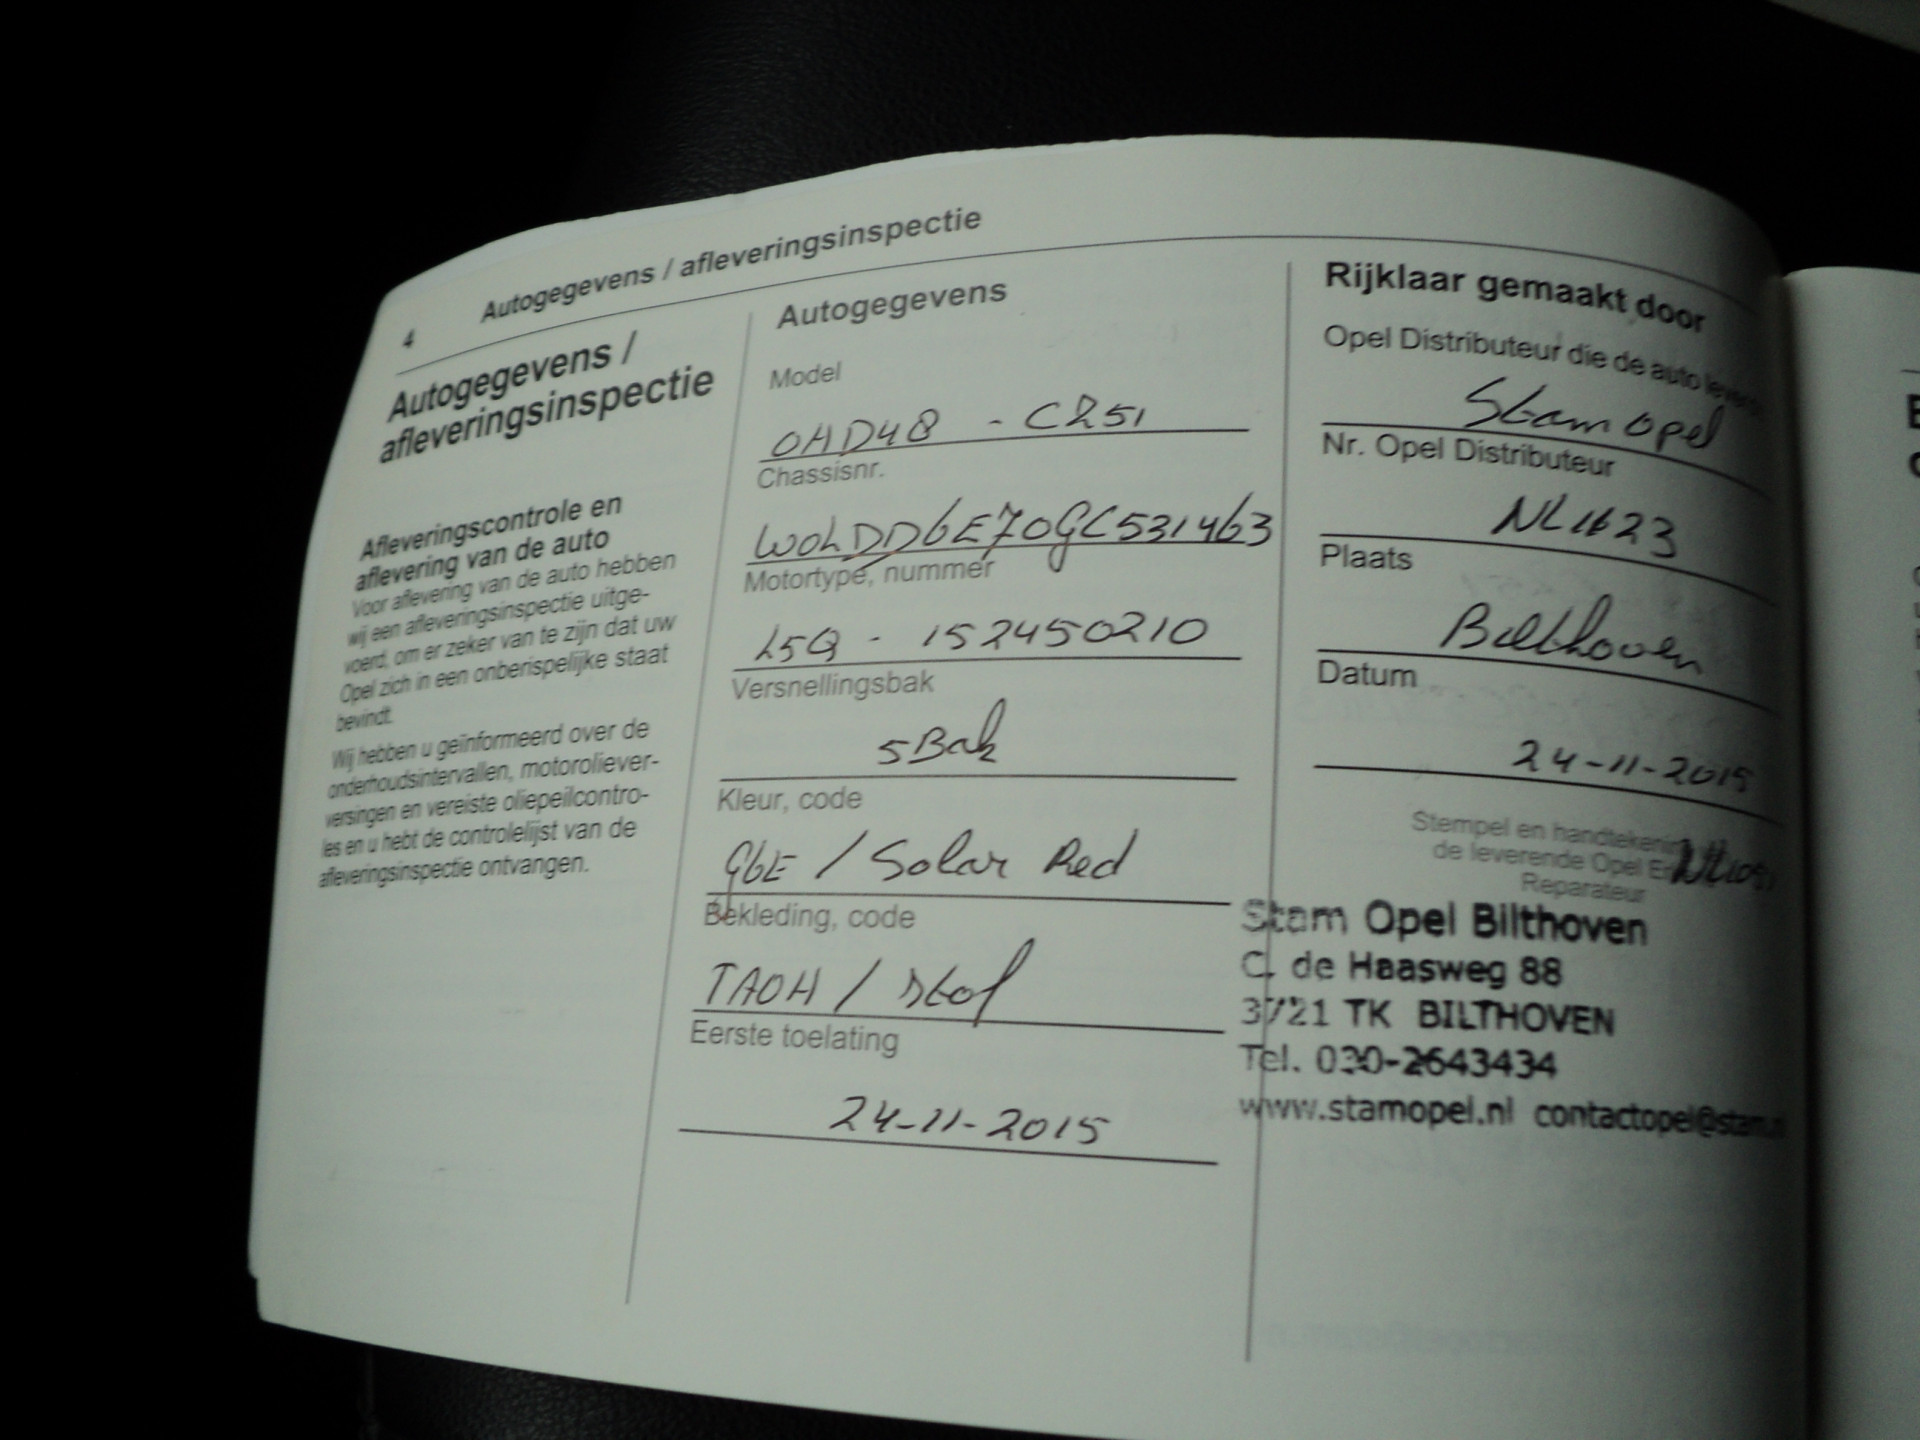 4 Autogegevens / afleveringsinspectie
Autogegevens /
afleveringsinspectie
Afleveringscontrole en
aflevering van de auto
Voor aflevering van de auto hebben
wij een afleveringsinspectie uitge-
voerd, om er zeker van te zijn dat uw
Opel zich in een onberispelijke staat
bevindt.
Wij hebben u geïnformeerd over de
onderhoudsintervallen, motoroliever-
versingen en vereiste oliepeilcontro-
les en u hebt de controlelijst van de
afleveringsinspectie ontvangen.
Autogegevens
Model
OHD48 - C251
Chassisnr.
W0LDD6E70GC531463
Motortype, nummer
L5Q - 152450210
Versnellingsbak
5Bak
Kleur, code
G6E / Solar Red
Bekleding, code
TAOH / Stof
Eerste toelating
24-11-2015
Rijklaar gemaakt door
Opel Distributeur die de auto
Stam Opel
Nr. Opel Distributeur
Plaats
Bilthoven
Datum
24-11-2015
Stempel en
de leverende Opel
Reparateur
Stam Opel Bilthoven
C. de Haasweg 88
3721 TK BILTHOVEN
Tel. 030-2643434
www.stamopel.nl contactopel@stam.nl